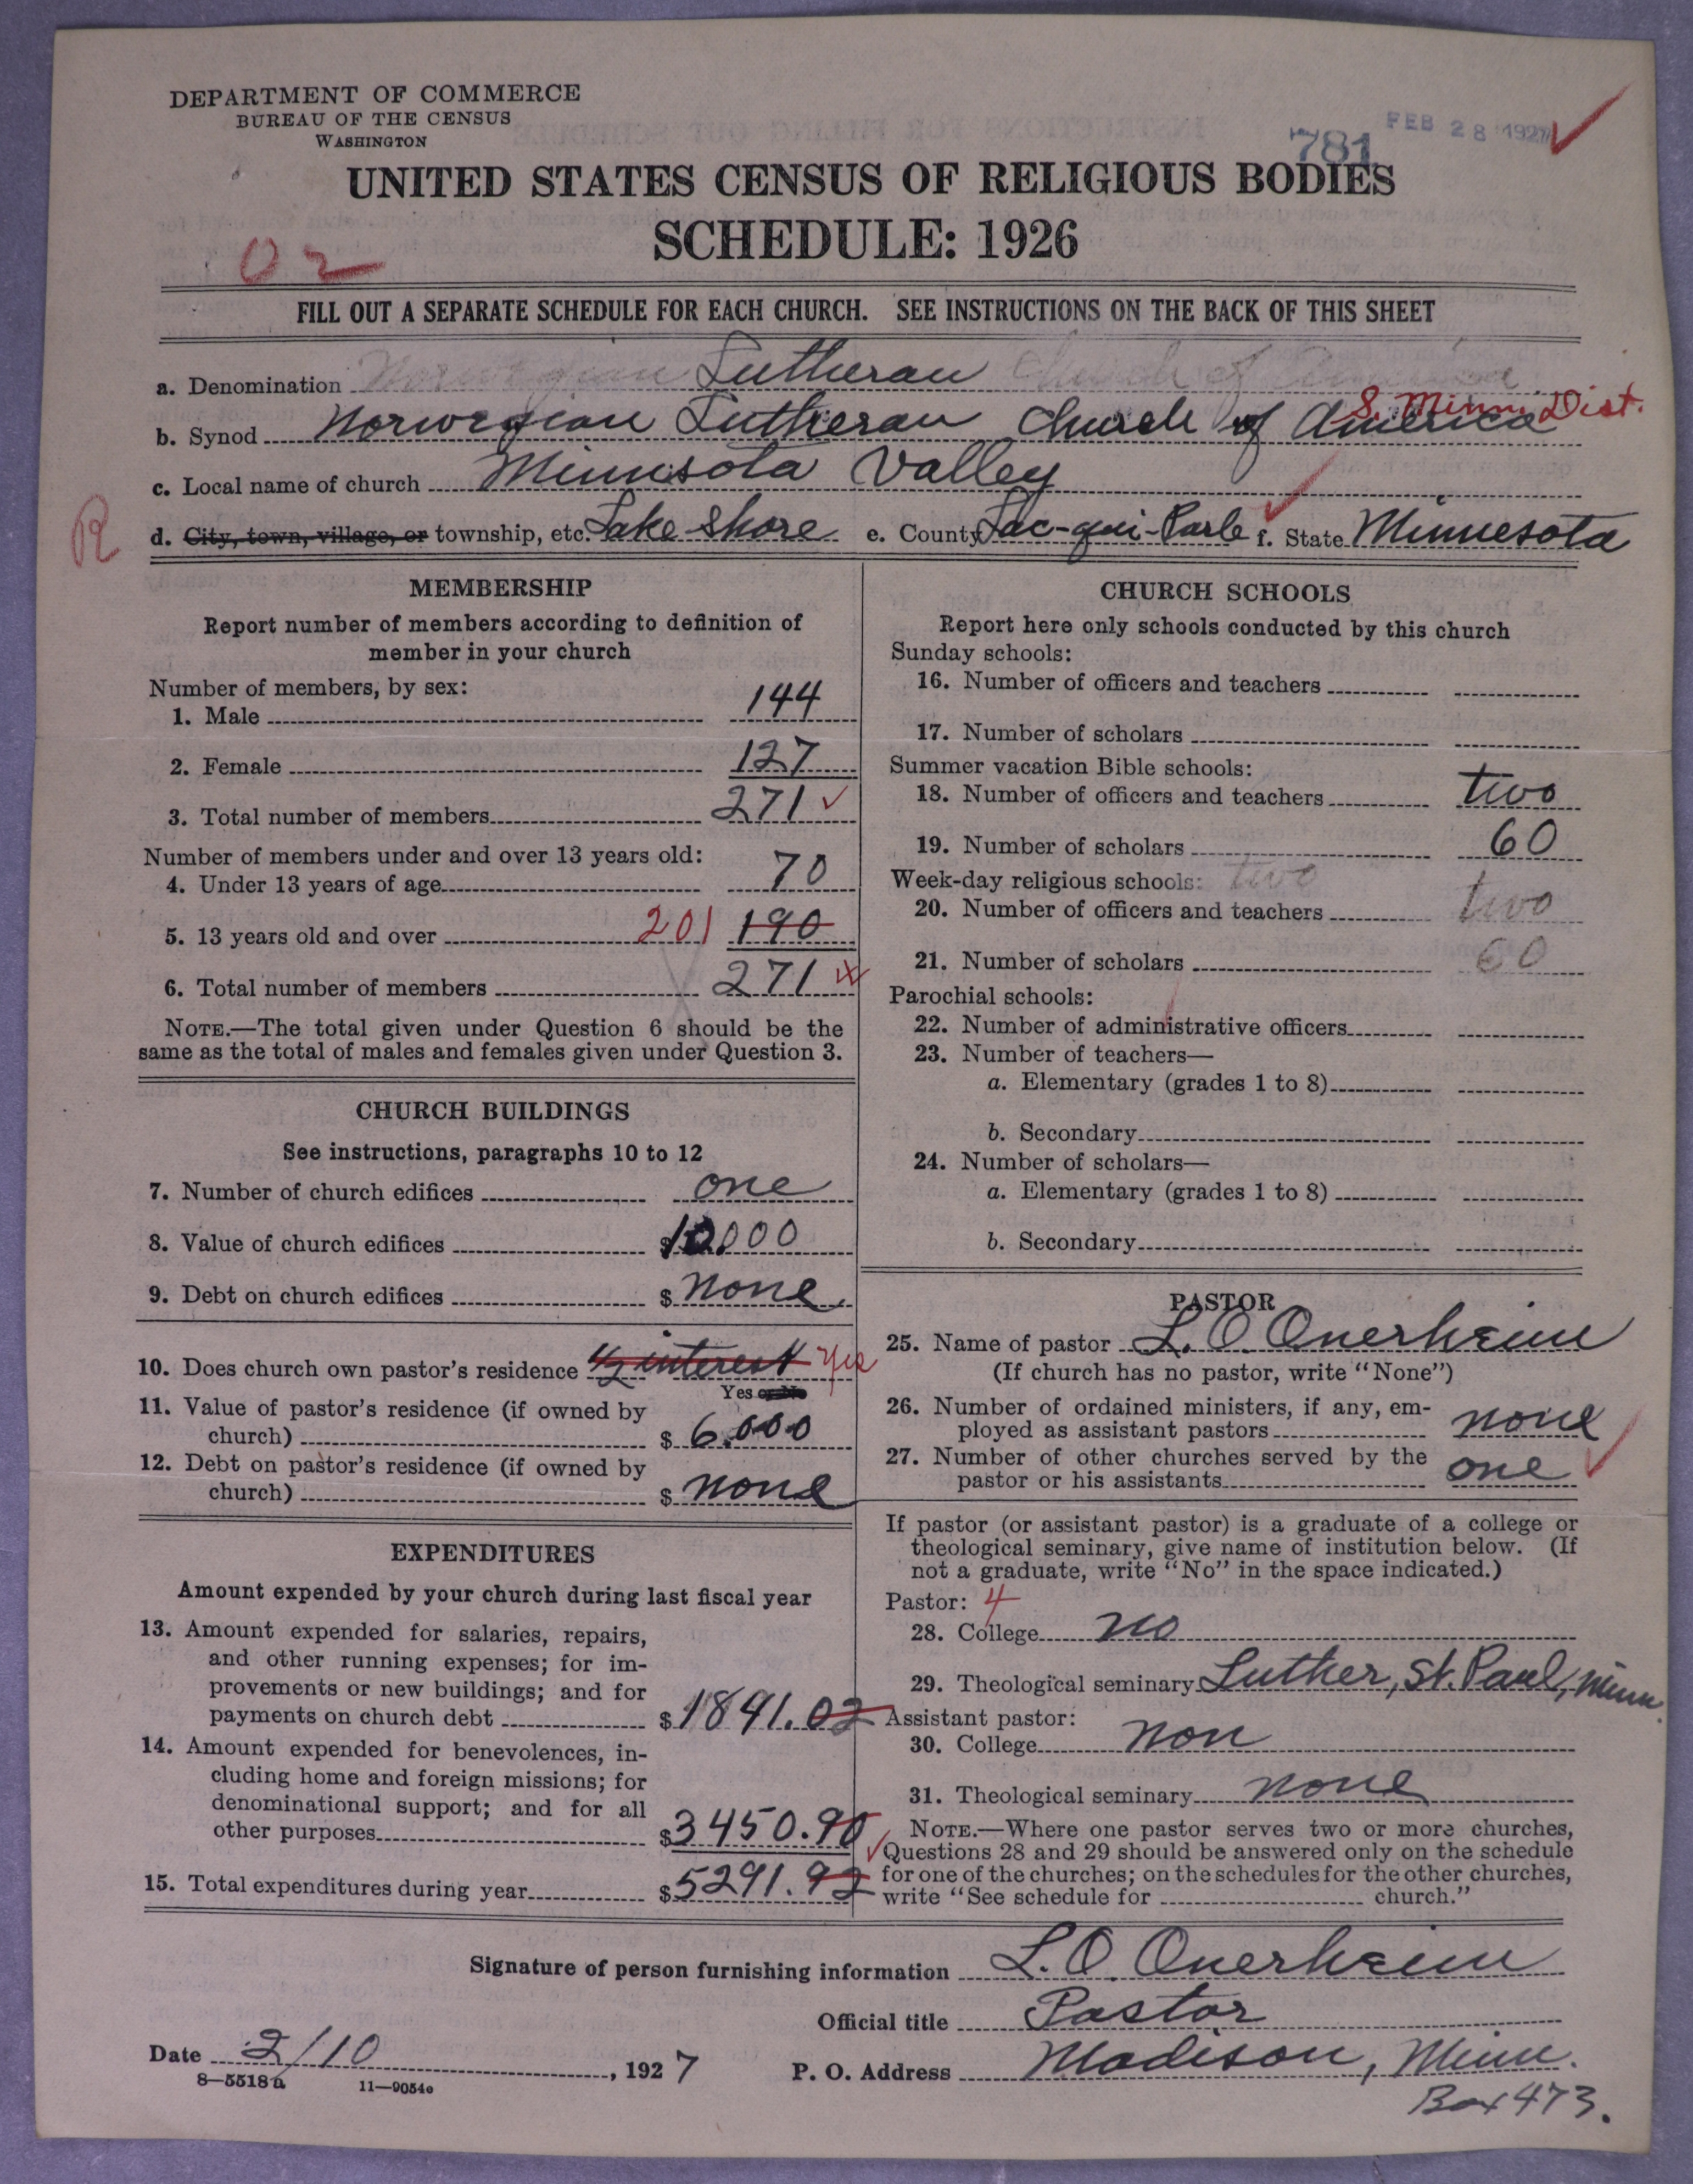 DEPARTMENT OF COMMERCE
BUREAU OF THE CENSUS
WASHINGTON
781
FEB 28 1927
UNITED STATES CENSUS OF RELIGIOUS BODIES
SCHEDULE: 1926
02
FILL OUT A SEPARATE SCHEDULE FOR EACH CHURCH. SEE INSTRUCTIONS ON THE BACK OF THIS SHEET
a. Denomination Norwegian Lutheran Church of America
S. Minn. Dist.
b. Synod Norwegian Lutheran Church of America
c. Local name of church Minnesota Valley
R
d. City, town, village, or township, etc. Lake Shore e. County Lac-qui-Parle f. State Minnesota
MEMBERSHIP
Report number of members according to definition of
member in your church
Number of members, by sex:
1. Male 144
2. Female 127
3. Total number of members 271
Number of members under and over 13 years old:
4. Under 13 years of age 70
5. 13 years old and over 201 190
6. Total number of members 271
NOTE.—The total given under Question 6 should be the
same as the total of males and females given under Question 3.
CHURCH BUILDINGS
See instructions, paragraphs 10 to 12
7. Number of church edifices one
8. Value of church edifices $10,000
9. Debt on church edifices $ none
10. Does church own pastor's residence 1/2 interest Yes
Yes or No
11. Value of pastor's residence (if owned by
church) $ 6.000
12. Debt on pastor's residence (if owned by
church) $ none
EXPENDITURES
Amount expended by your church during last fiscal year
13. Amount expended for salaries, repairs,
and other running expenses; for im-
provements or new buildings; and for
payments on church debt $1841.02
14. Amount expended for benevolences, in-
cluding home and foreign missions; for
denominational support; and for all
other purposes $3450.90
15. Total expenditures during year $5291.92
CHURCH SCHOOLS
Report here only schools conducted by this church
Sunday schools:
16. Number of officers and teachers
17. Number of scholars
Summer vacation Bible schools:
18. Number of officers and teachers two
19. Number of scholars 60
Week-day religious schools: two
20. Number of officers and teachers two
21. Number of scholars 60
Parochial schools:
22. Number of administrative officers
23. Number of teachers—
a. Elementary (grades 1 to 8)
b. Secondary
24. Number of scholars—
a. Elementary (grades 1 to 8)
b. Secondary
PASTOR
25. Name of pastor L. O. Onerheim
(If church has no pastor, write "None")
26. Number of ordained ministers, if any, em-
ployed as assistant pastors none
27. Number of other churches served by the
pastor or his assistants one
If pastor (or assistant pastor) is a graduate of a college or
theological seminary, give name of institution below. (If
not a graduate, write "No" in the space indicated.)
Pastor: 4
28. College no
29. Theological seminary Luther, St. Paul, Minn.
Assistant pastor:
30. College non
31. Theological seminary none
NOTE.—Where one pastor serves two or more churches,
Questions 28 and 29 should be answered only on the schedule
for one of the churches; on the schedules for the other churches,
write "See schedule for church."
Signature of person furnishing information L. O. Onerheim
Official title Pastor
Date 2/10, 1927 P. O. Address Madison, Minn.
Box 473.
8—5518a 11—9054c